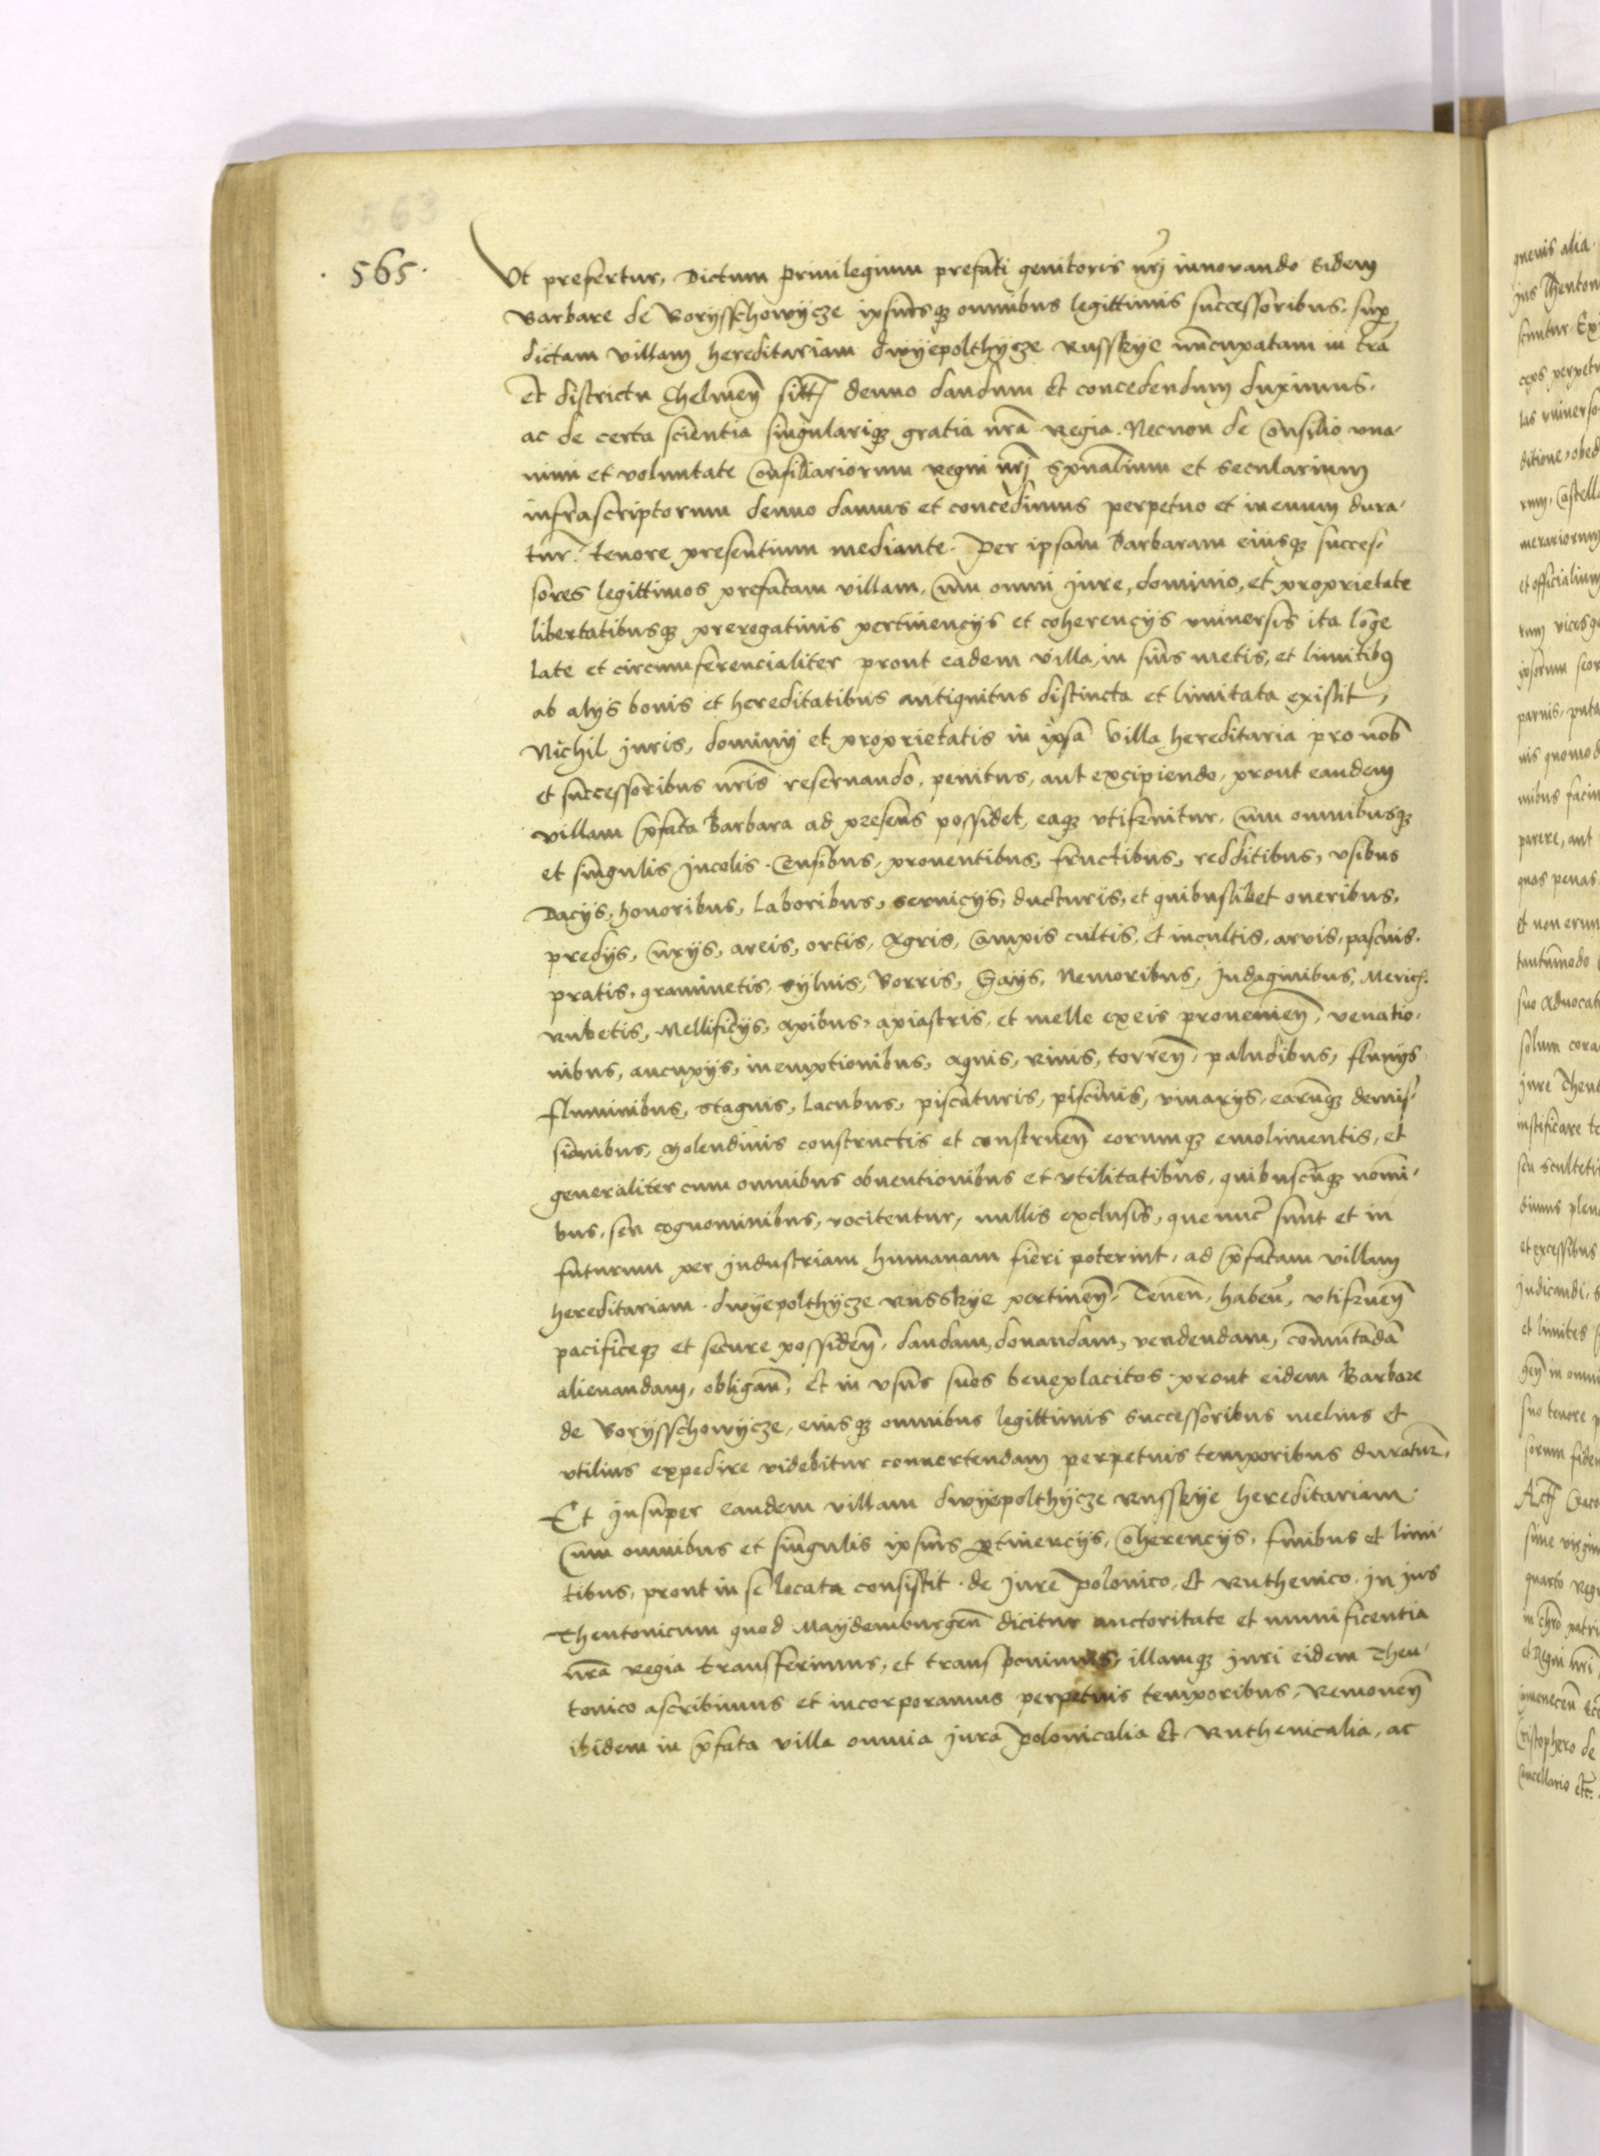 563
· 565 ·
Vt prefertur, Dictum priuilegium prefati genitoris nrj innouando Eidem
Barbare de Borysschowycze ipsiusqz omnibus legittimis successoribus. sup
dictam villam hereditariam dwyepolthycze Russkye nuncupatam in tra
et districtu Chelmen sitt denuo dandum et concedendum duximus.
ac de certa scientia singulariqz gratia nra Regia. Necnon de Consilio vna-
nimi et voluntate Consiliariorum Regni nrj spualium et secularium
infrascriptorum denuo damus et concedimus perpetuo et in euum dura-
tur. tenore presentium mediante. Per ipsam Barbaram eiusqz succes-
sores legittimos prefatam villam, Cum omni jure, dominio, et proprietate
libertatibusqz preregatiuis pertinencijs et coherencijs vniuersis ita longe
late et circumferencialiter prout eadem villa, in suis metis, et limitibus
ab alijs bonis et hereditatibus antiquitus distincta et limitata existit,
Nichil juris, dominij et proprietatis in ipsa villa hereditaria pro nob
et successoribus nris reseruando, penitus, aut excipiendo, prout eandem
villam pfata Barbara ad presens possidet, eaqz vtifruitur. Cum omnibusqz
et singulis Incolis. Censibus, prouentibus, fructibus, redditibus, vsibus
Dacijs, honoribus, Laboribus, seruicijs, ducturis, et quibuslibet oneribus,
predijs, Curijs, areis, ortis, Agris, Campis cultis, et incultis, aruis, pascuis.
pratis, graminetis, syluis, Borris, Gays, Nemoribus, Indaginibus, Mericis.
Rubetis, Mellificijs, apibus, apiastris, et melle ex eis prouenien, venatio-
nibus, aucupijs, inemptionibus, aquis, riuis, torren, paludibus, fluuijs
fluminibus, stagnis, Lacubus, piscaturis, piscinis, viuarijs, earunqz demis-
sionibus, Molendinis constructis et construen eorumqz emolimentis, et
generaliter cum omnibus obuentionibus et vtilitatibus, quibuscunqz nomi-
bus, seu cognominibus, vocitentur, nullis exclusis, que nunc sunt et in
futurum per jndustriam humanam fieri poterint, ad pfatam villam
hereditariam. dwyepolthycze russkye pertinen, Tenen, haben, vtifruen
pacificeqz et secure possiden, dandam, donandam, vendendam, commutada
alienandam, obligan, et in vsus suos beneplacitos prout eidem Barbare
de Borysschowycze, eiusqz omnibus legittimis successoribus melius et
vtilius expedire videbitur conuertendam perpetuis temporibus duratur.
Et Insuper eandem villam dwyepolthycze russkye hereditariam
Cum omnibus et singulis ipsius ptinencijs, Coherencijs, finibus et limi-
tibus, prout in se locata consistit. de jure polonico, et Ruthenico. in jus
Theutonicum quod Maydemburgen dicitur auctoritate et munificentia
nra regia transferimus, et transponimus, illamqz juri eidem Theu-
tonico ascribimus et incorporamus perpetuis temporibus, Remouen
ibidem in pfata villa omnia jura polonicalia et Ruthenicalia, ac